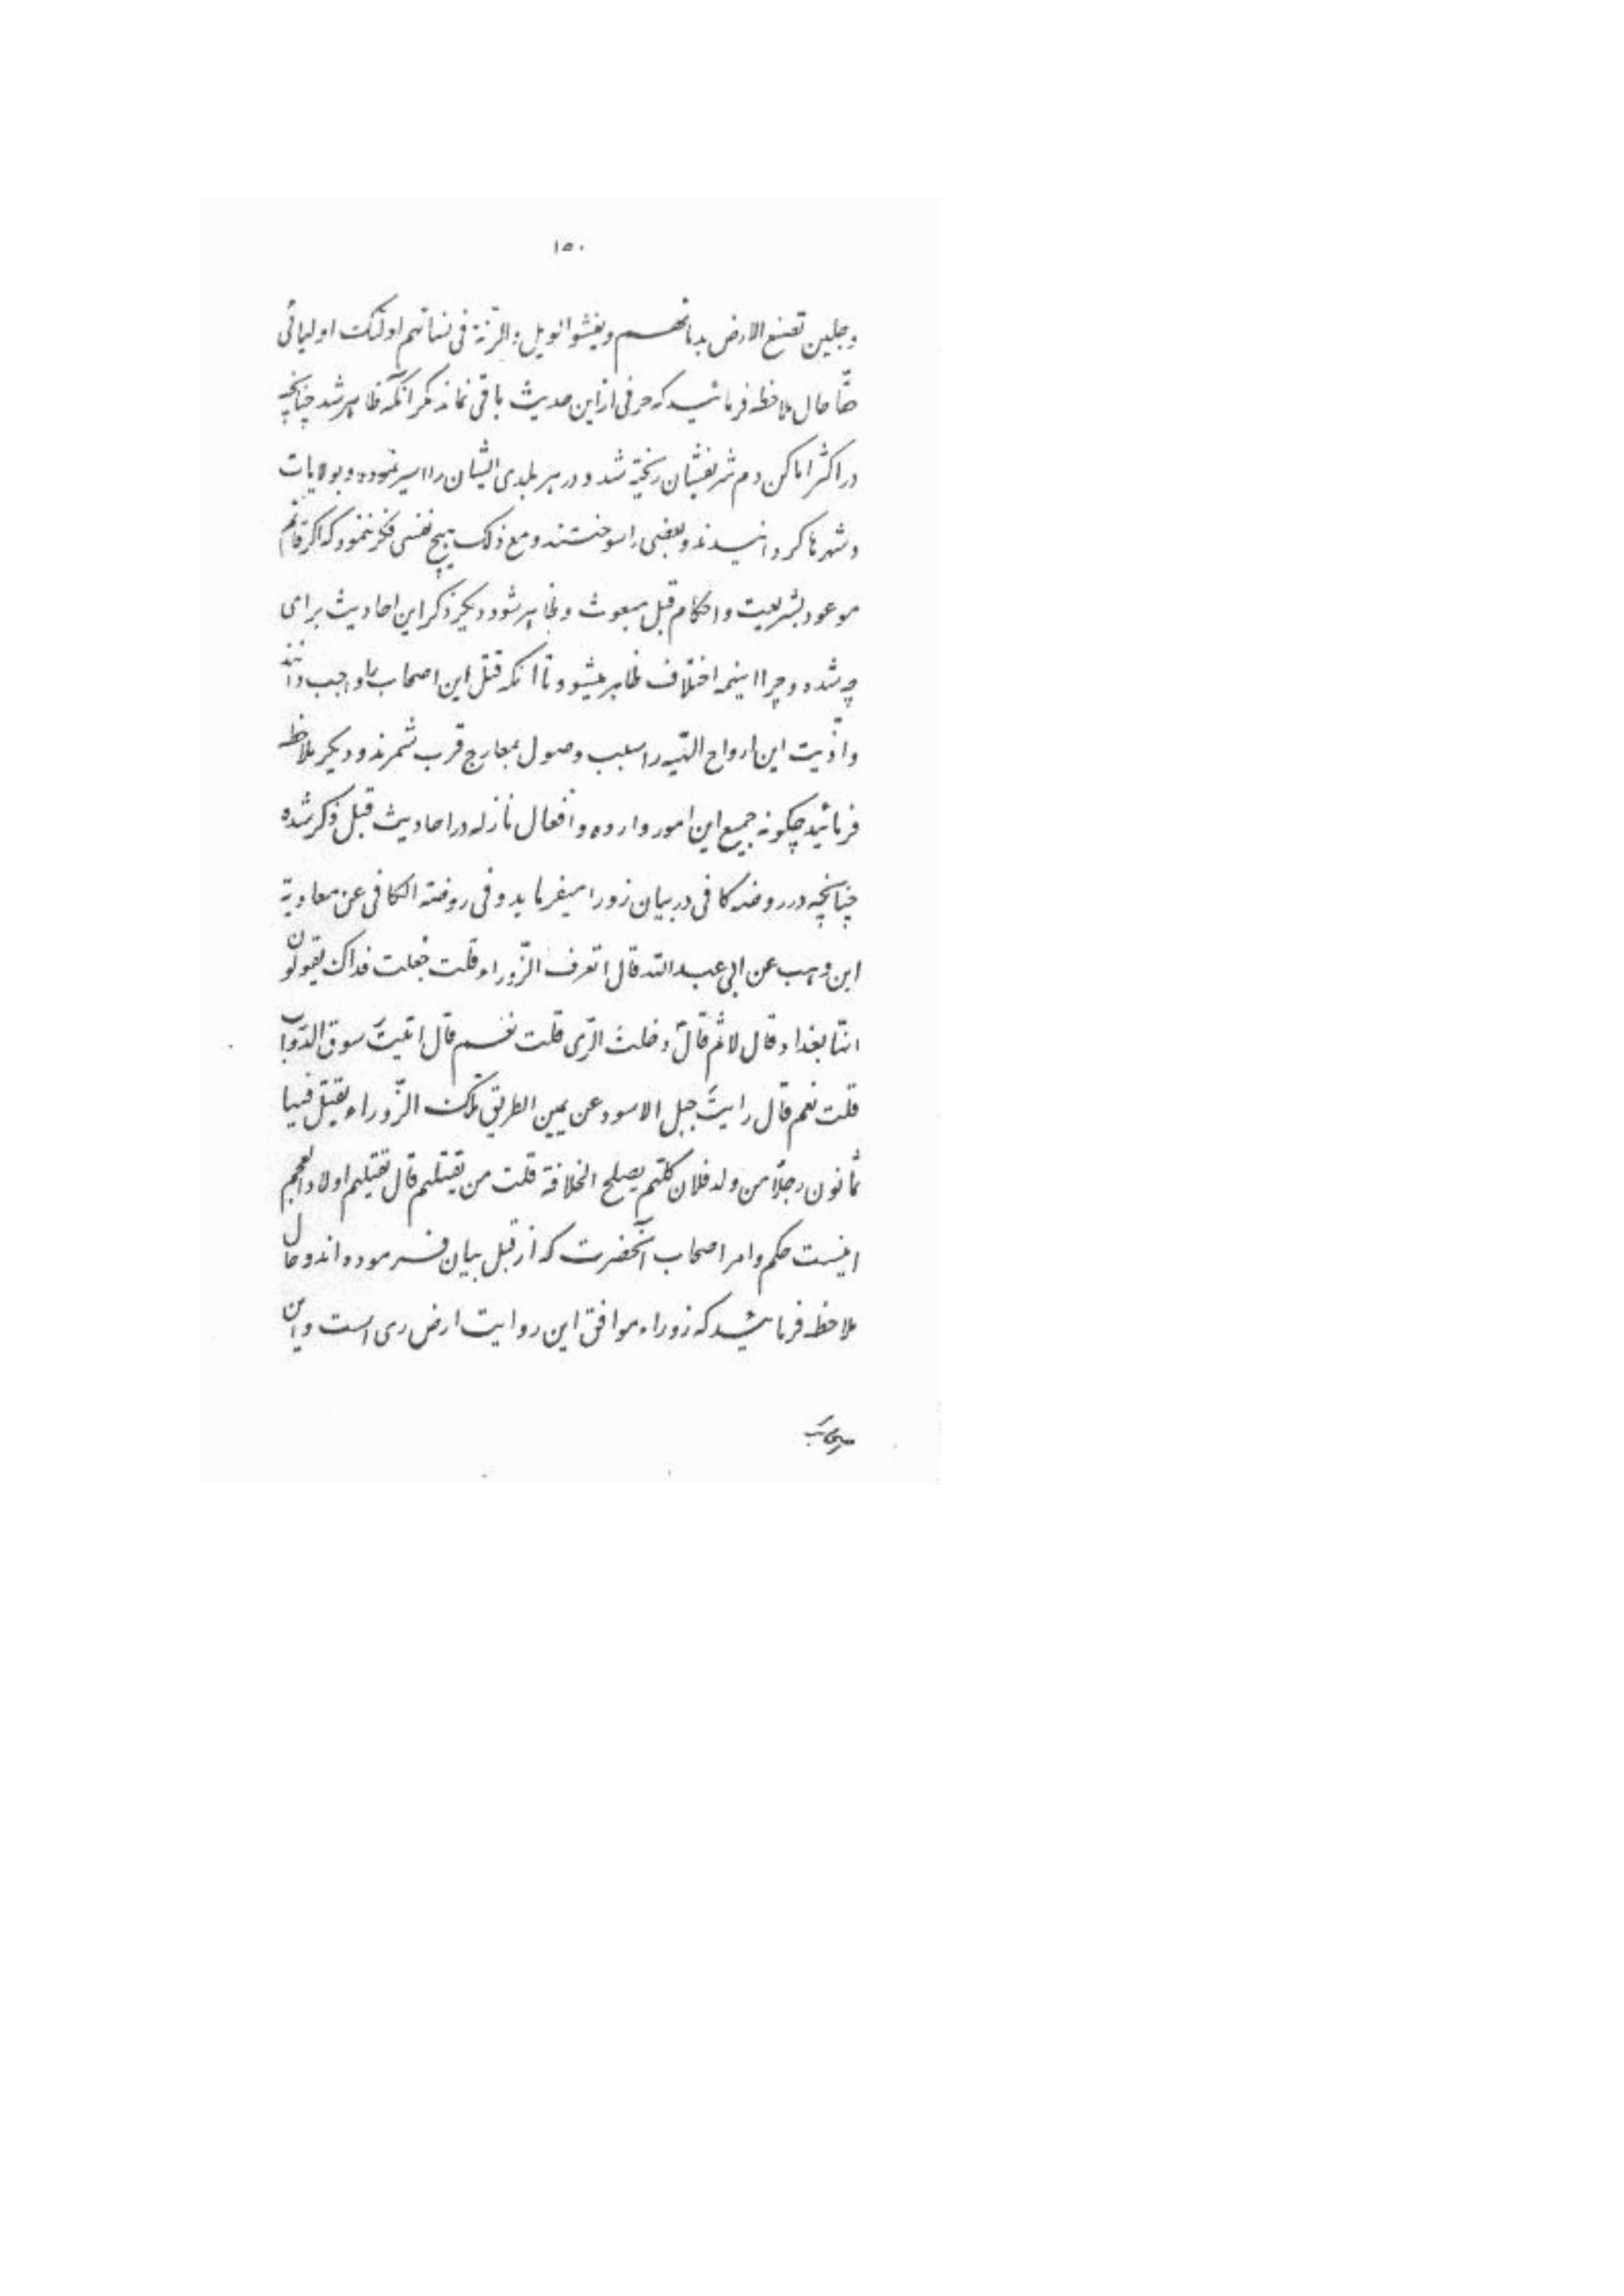 ١٥٠
وجلین تصبغ الارض بدمائهم و یفشوا الویل و الرّنة فی نسائهم اولئک اولیائی
حقّا حال ملاحظه فرمائید که حرفی از این حدیث باقی نماند مگر آنکه ظاهر شد چنانچه
در اکثر اماکن دم شریفشان ریخته شد و در هر بلدی ایشان را اسیر نموده و بولایات
و شهرها گردانیدند و بعضی را سوختند و مع ذلک هیچ نفسی فکر ننمود که اگر قائم
موعود بشریعت و احکام قبل مبعوث و ظاهر شود دیگر ذکر این احادیث برای
چه شده و چرا اینهمه اختلاف ظاهر میشود تا آنکه قتل این اصحاب را واجب دانند
و اذّیت این ارواح الهّیه را سبب وصول بمعارج قرب شمرند و دیگر ملاحظه
فرمائید چگونه جمیع این امور وارده و افعال نازله در احادیث قبل ذکر شده
چنانچه در روضه کافی در بیان زورا میفرماید و فی روضة الکافی عن معاویة
ابن وهب عن ابی عبدالله قال اتعرف الزّوراء قلت جُعلت فداک یقولون
انّها بغداد قال لا ثمّ قال دخلتَ الرّی قلت نعم قال اتیتَ سوق الدّوابّ
قلت نعم قال رایتَ جبل الاسود عن یمین الطریق تلک الزّوراء یقتل فیها
ثمانون رجلاً من ولد فلان کلّهم یصلح الخلافة قلت من یقتلهم قال یقتلهم اولاد العجم
اینست حکم و امر اصحاب آنحضرت که از قبل بیان فرموده‌اند و حال
ملاحظه فرمائید که زوراء موافق این روایت ارض ری است و این